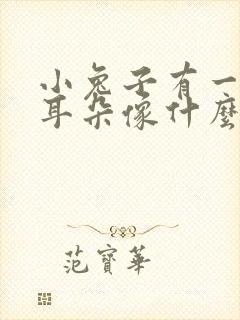 小兔子有一
耳朵像什麼
范寶華